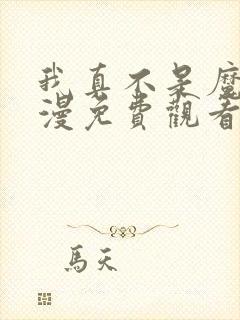 我真不是魔
漫免費觀看
馬天